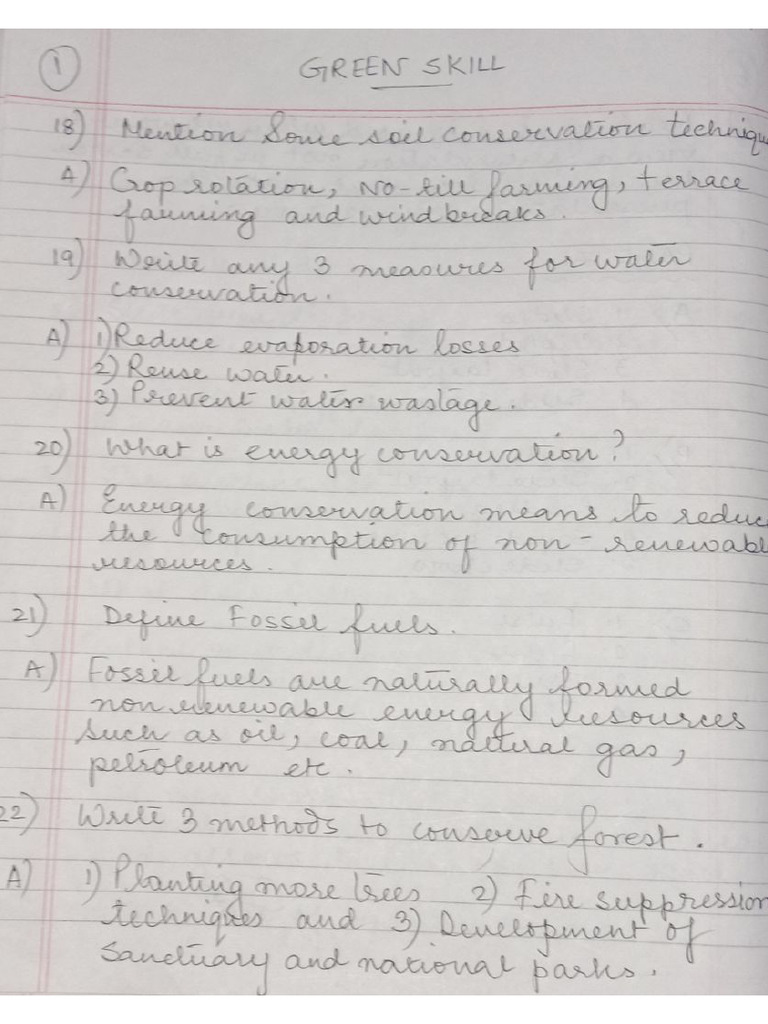 1
GREEN SKILL
18) Mention Some soil conservation techniqu
A) Crop rotation, No-till farming, terrace
farming and windbreaks.
19) Write any 3 measures for water
conservation.
A) 1) Reduce evaporation losses
2) Reuse water.
3) Prevent water wastage.
20) What is energy conservation?
A) Energy conservation means to reduc
the consumption of non-renewabl
resources.
21) Define Fossil fuels.
A) Fossil fuels are naturally formed
non renewable energy resources
such as oil, coal, natural gas,
petroleum etc.
22) Write 3 methods to conserve forest.
A) 1) Planting more trees 2) Fire suppression
techniques and 3) Development of
Sanctuary and national parks.